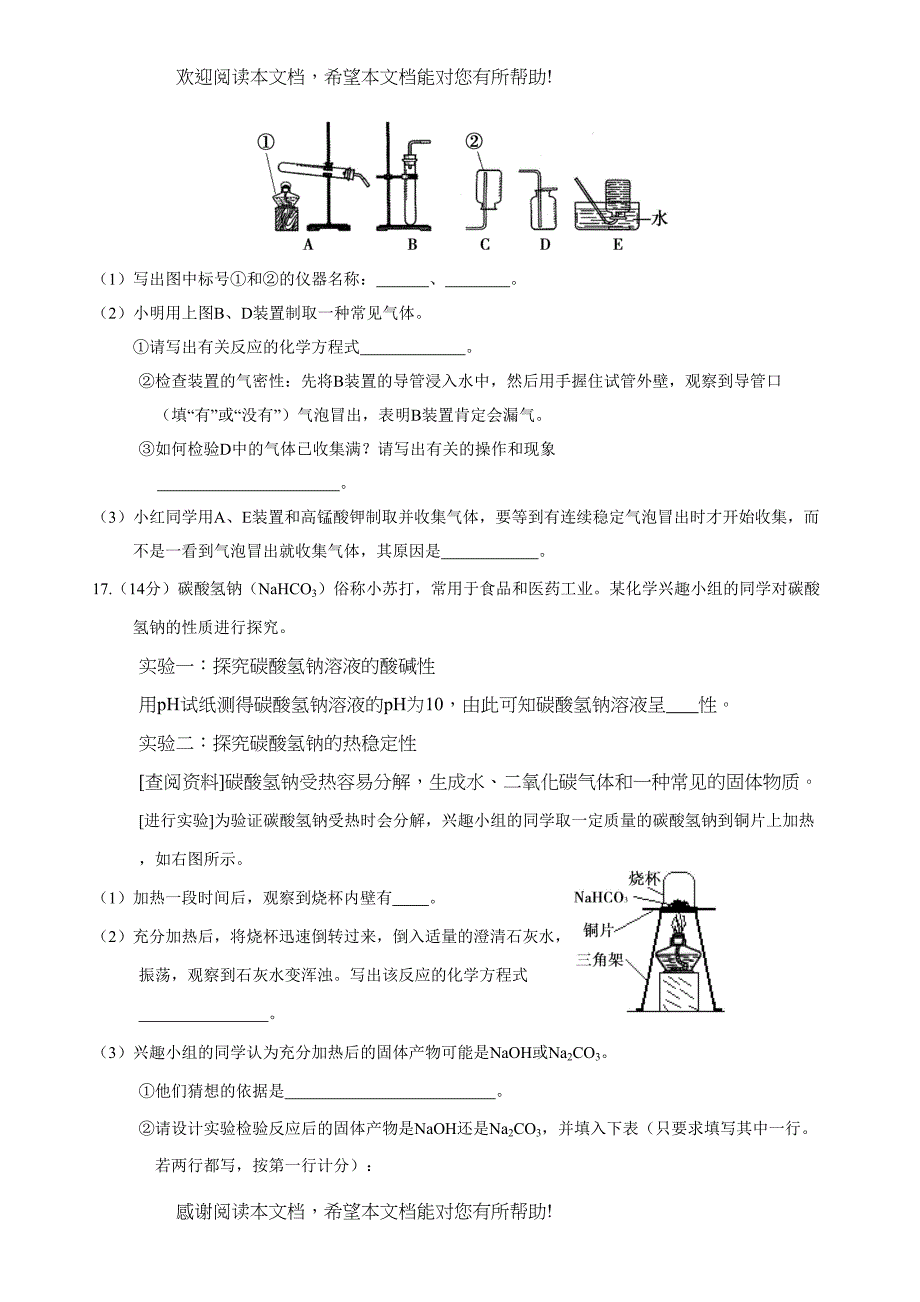 欢迎阅读本文档，希望本文档能对您有所帮助!
① ②
水
A B C D E
（1）写出图中标号①和②的仪器名称：______、________。
（2）小明用上图B、D装置制取一种常见气体。
①请写出有关反应的化学方程式_____________。
②检查装置的气密性：先将B装置的导管浸入水中，然后用手握住试管外壁，观察到导管口
（填“有”或“没有”）气泡冒出，表明B装置肯定会漏气。
③如何检验D中的气体已收集满？请写出有关的操作和现象
______________________。
（3）小红同学用A、E装置和高锰酸钾制取并收集气体，要等到有连续稳定气泡冒出时才开始收集，而
不是一看到气泡冒出就收集气体，其原因是____________。
17.（14分）碳酸氢钠（NaHCO₃）俗称小苏打，常用于食品和医药工业。某化学兴趣小组的同学对碳酸
氢钠的性质进行探究。
实验一：探究碳酸氢钠溶液的酸碱性
用pH试纸测得碳酸氢钠溶液的pH为10，由此可知碳酸氢钠溶液呈____性。
实验二：探究碳酸氢钠的热稳定性
[查阅资料]碳酸氢钠受热容易分解，生成水、二氧化碳气体和一种常见的固体物质。
[进行实验]为验证碳酸氢钠受热时会分解，兴趣小组的同学取一定质量的碳酸氢钠到铜片上加热
，如右图所示。
（1）加热一段时间后，观察到烧杯内壁有____。
（2）充分加热后，将烧杯迅速倒转过来，倒入适量的澄清石灰水，
振荡，观察到石灰水变浑浊。写出该反应的化学方程式
________________。
烧杯
NaHCO₃
铜片
三角架
（3）兴趣小组的同学认为充分加热后的固体产物可能是NaOH或Na₂CO₃。
①他们猜想的依据是__________________________。
②请设计实验检验反应后的固体产物是NaOH还是Na₂CO₃，并填入下表（只要求填写其中一行。
若两行都写，按第一行计分）：
感谢阅读本文档，希望本文档能对您有所帮助!